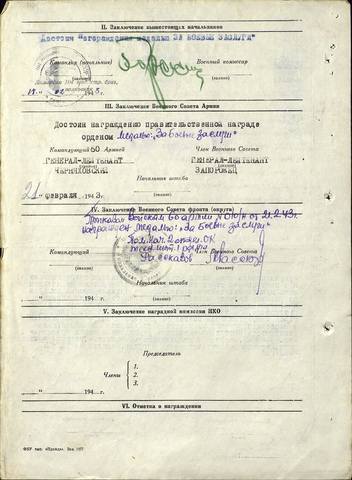 II. Заключение вышестоящих начальников
Достоин награждения медалью "ЗА БОЕВЫЕ ЗАСЛУГИ"
Командир (начальник) Военный комиссар
(звание) (звание)
194 г.
III. Заключение Военного Совета Армии
Достоин награждению правительственной наградe
орденом медалью: „За боевые заслуги"
Командующий 60 Армией Член Военного Совета
ГЕНЕРАЛ-ЛЕЙТЕНАНТ ГЕНЕРАЛ-ЛЕЙТЕНАНТ
ЧЕРНЯХОВСКИЙ ЗАПОРОЖЕЦ
Начальник штаба
21 февраля 1943 г.
IV. Заключение Военного Совета фронта (округа)
Приказом Войскам 60 армии № 010/н от 21.2.43г.
награжден медалью: „За боевые заслуги"
Командующий Член Военного Совета
(звание) (звание)
Начальник штаба
(звание)
„ " 194 г.
V. Заключение наградной комиссии НКО
Председатель
Члены
1.
2.
3.
„ " 194 г.
VI. Отметка о награждении